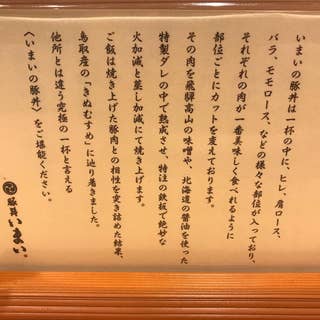 いまいの豚丼は一杯の中に、ヒレ、肩ロース、
バラ、モモロース、などの様々な部位が入っており、
それぞれの肉が一番美味しく食べれるように
部位ごとにカットを変えております。
その肉を飛騨高山の味噌や、北海道の醤油を使った
特製ダレの中で熟成させ、特注の鉄板で絶妙な
火加減と蒸し加減にて焼き上げます。
ご飯は焼き上げた豚肉との相性を突き詰めた結果、
鳥取産の「きぬむすめ」に辿り着きました。
他所とは違う究極の一杯と言える
〈いまいの豚丼〉をご堪能ください。
豚丼 いまい。